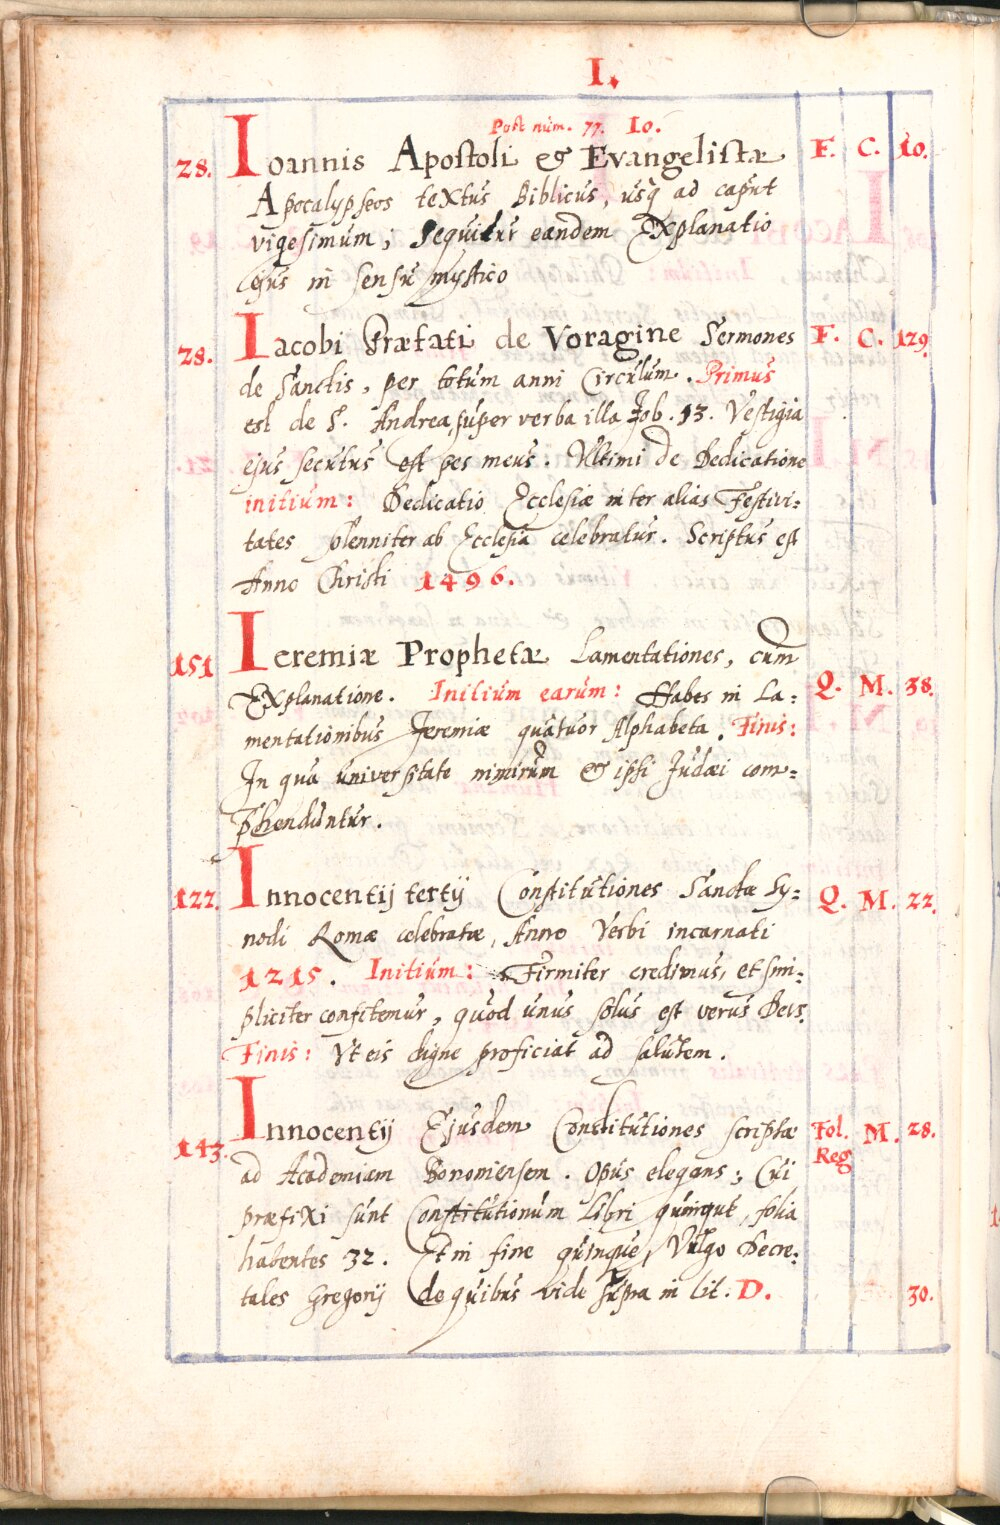 I.
Post nùm. 77. Io.
28. Ioannis Apostoli & Evangelistæ F. C. 10.
Apocalypseos teXtus Biblicus, usq̀ ad capùt
vigesimùm; Sequitùr eandem EXplanatio
ejùs in sensù mystico
28. Iacobi Præfati de Voragine Sermones F. C. 129.
de Sanctis, per totùm anni Circùlùm. Primus
est de S. Andrea, sùper verba illa Job. 13. Vestigia
ejùs secùtùs est pes meùs. Ultimi de Dedicatione
initiùm: Dedicatio Ecclesiæ inter alias Festivi:
tates solenniter ab Ecclesia celebratùr. Scriptùs est
Anno Christi 1496.
151 Ieremiæ Prophetæ Lamentationes, cùm
EXplanatione. Initiùm earùm: Habes in La: Q. M. 38.
mentationibùs Jeremiæ quàtùor Alphabeta. Finis:
In qua ùniversitate nimirùm & ipsi Jùdæi com=
phendùntùr.
122. Innocentij tertij Constitùtiones Sanctæ Sy: Q. M. 22.
nodi Romæ celebratæ, Anno Verbi incarnati
1215. Initiùm: Firmiter credimùs, et sim:
pliciter confitemùr, qùod ùnùs solùs est verùs Deùs.
Finis: Vt eis digne proficiat ad salùtem.
143. Innocentij Ejùsdem Constitùtiones scriptæ Fol. M. 28.
Reg
ad Academiam Bononiensem. Opùs elegans; Cùi
præfiXi sùnt Constitùtionùm libri qùinqùe, folia
habentes 32. Et in fine qùinqùe, Vùlgo Decre:
tales Gregorij de qùibùs vide sùpra in lit. D. 30.